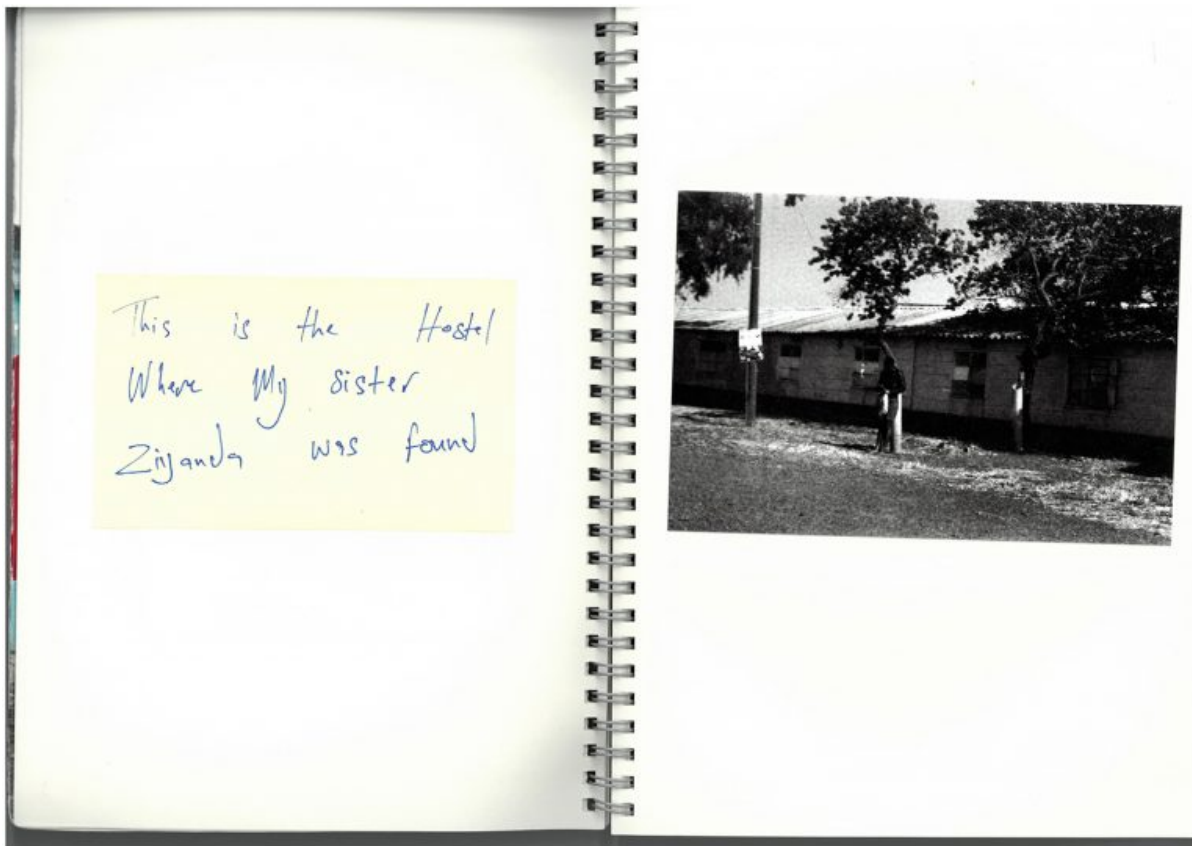 This is the Hostel
Where My sister
Ziyanda was found